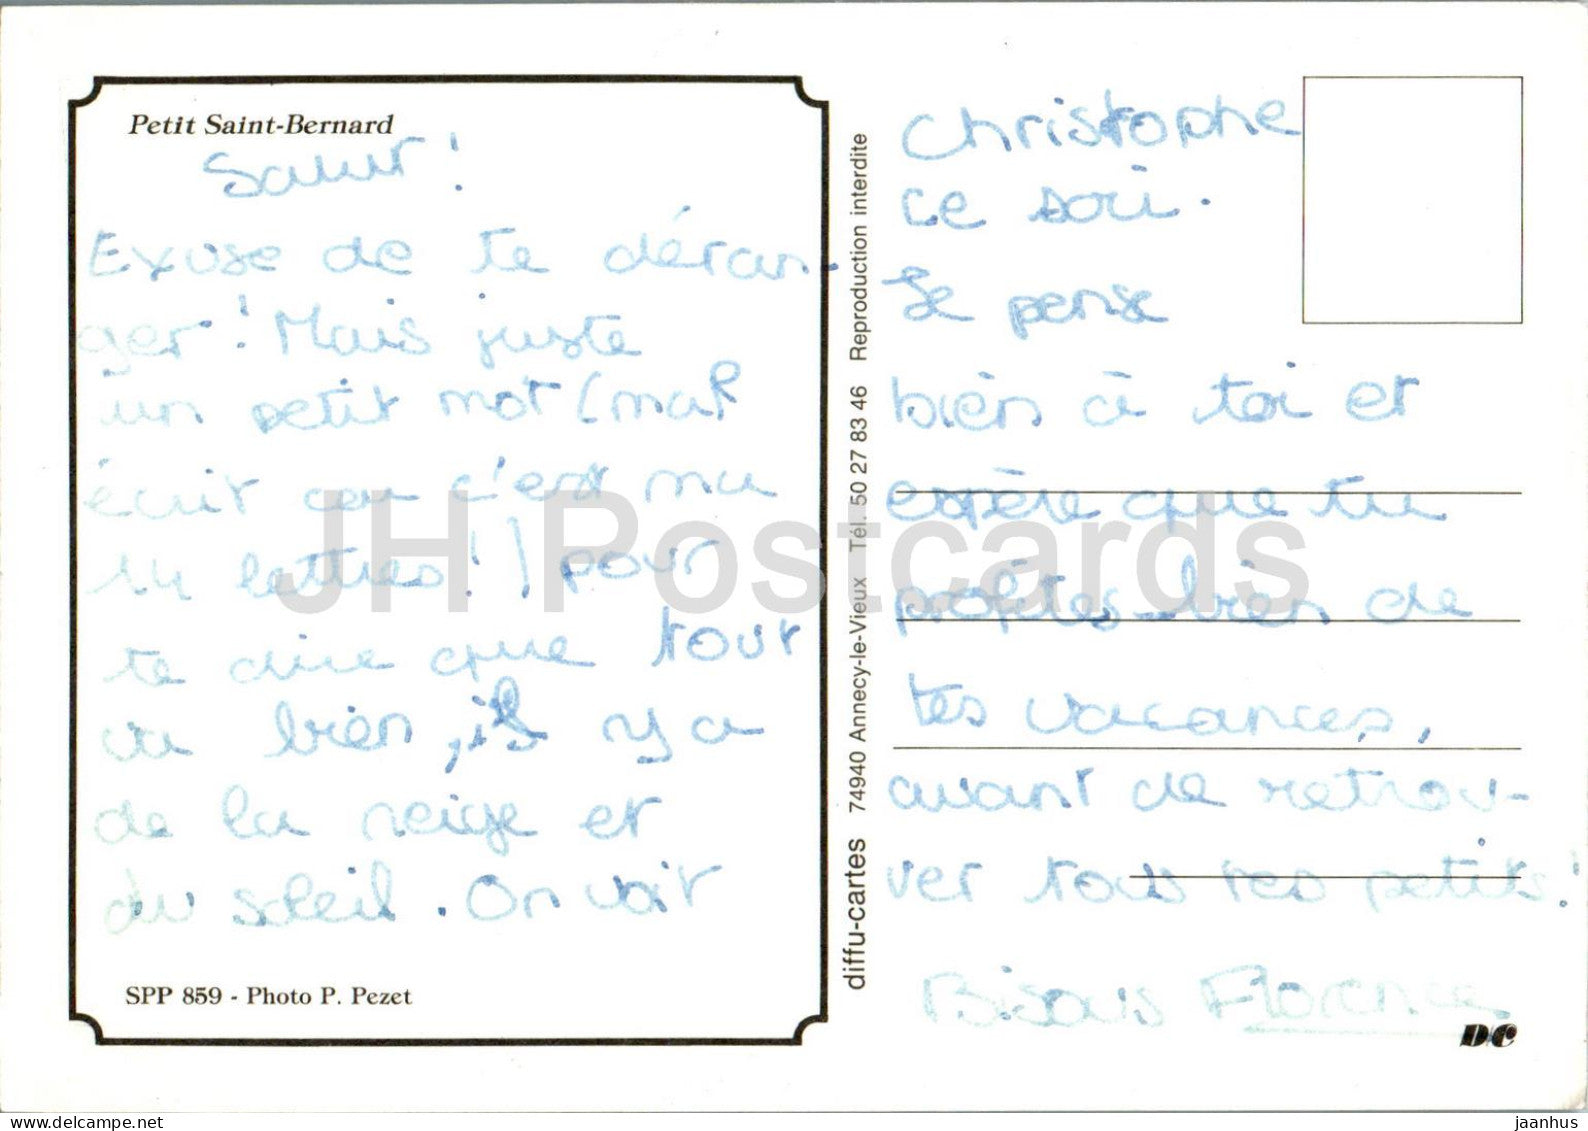 Petit Saint-Bernard
Salut !
Exuse de te déran-
ger ! Mais juste
un petit mot (mal
écrit car c'est ma
14 lettres ! ) pour
te dire que tout
va bien, il y a
de la neige et
du soleil. On voit
SPP 859 - Photo P. Pezet
diffu-cartes 74940 Annecy-le-Vieux Tél. 50 27 83 46 Reproduction interdite
Christophe
ce soir.
Je pense
bien à toi et
espère que tu
profites bien de
tes vacances,
avant de retrou-
ver tous tes petits !
Bisous Florence
D/C
JH Postcards
delcampe.net
jaanhus